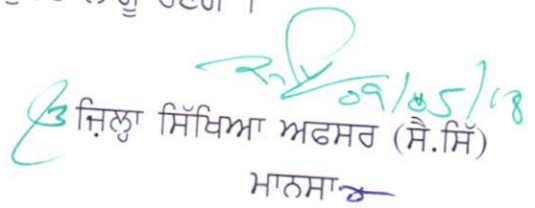 09/05/18
ਜ਼ਿਲ੍ਹਾ ਸਿੱਖਿਆ ਅਫਸਰ (ਸੈ.ਸਿੱ)
ਮਾਨਸਾ